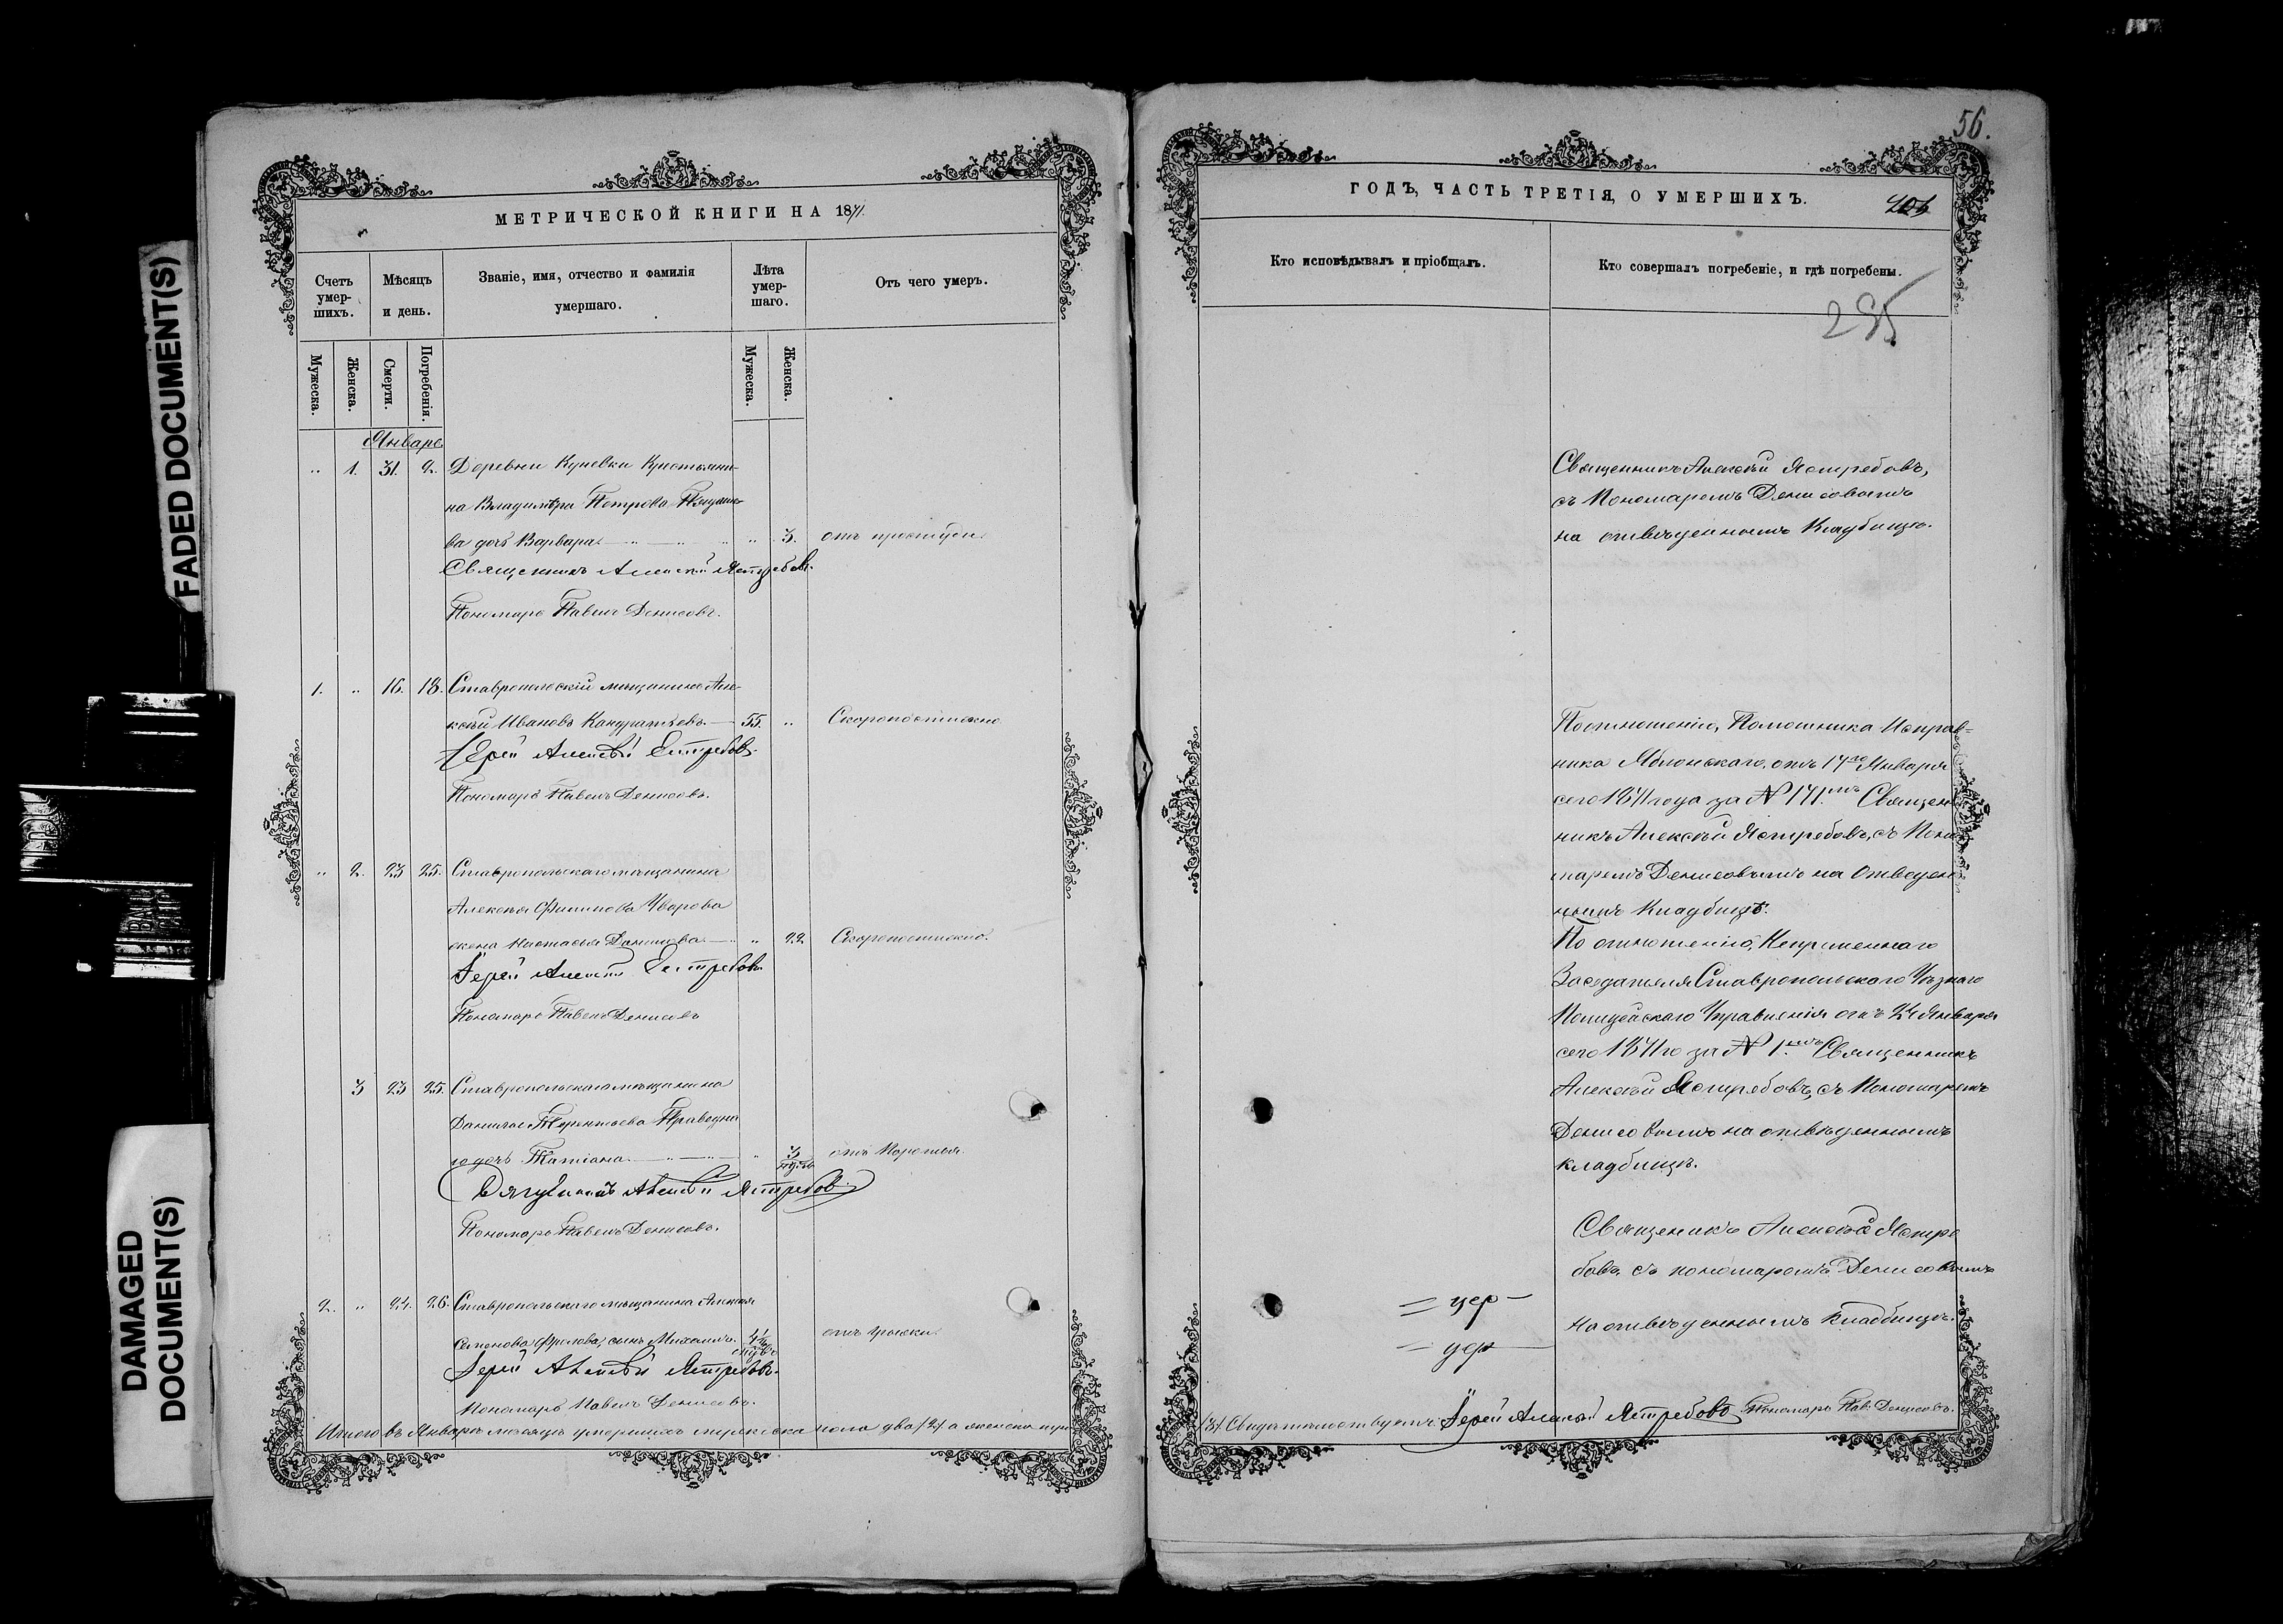 FADED DOCUMENT(S)
DAMAGED
DOCUMENT(S)
МЕТРИЧЕСКОЙ КНИГИ НА 1871.
Счетъ
умер-
шихъ.
Мѣсяцъ
и день.
Званіе, имя, отчество и фамилія
умершаго.
Лѣта
умер-
шаго.
Отъ чего умеръ.
Мужеска.
Женска.
Смерти.
Погребенія.
Мужеска.
Женска.
Январь
" 1. 31. 2. Деревни Крестьяни-
на Владиміра Петрова
ва дочь Варвара " 3. отъ простуды
Священникъ Алексѣй Ястребовъ.
Пономарь Павелъ Денисовъ.
1. " 16. 18. Ставропольскій мѣщанинъ Але-
ксѣй Ивановъ Кандратьевъ. 55. " Скоропостижно
Іерей Алексѣй Ястребовъ
Пономарь Павелъ Денисовъ.
" 2. 23 25. Ставропольскаго мѣщанина
Алексѣя Филипова Уварова
жена Настасья Данилова " 22. Скоропостижно.
Іерей Алексѣй Ястребовъ
Пономарь Павелъ Денисовъ
3 23 25. Ставропольскаго мѣщанина
Данилы Терентьева
дочь Татіана " 3
отъ
Алексѣй Ястребовъ
Пономарь Павелъ Денисовъ.
2. " 24. 26. Ставропольскаго мѣщанина Алексѣя
Семенова Фролова, сынъ Михаилъ.
отъ
Іерей Алексѣй Ястребовъ.
Пономарь Павелъ Денисовъ.
Итого въ Январѣ мѣсяцѣ умершихъ мужеска пола два (2) а женска три
56.
ГОДЪ, ЧАСТЬ ТРЕТІЯ, О УМЕРШИХЪ.
Кто исповѣдывалъ и пріобщалъ.
Кто совершалъ погребеніе, и гдѣ погребены.
295
Священникъ Алексѣй Ястребовъ,
съ Пономаремъ Денисовымъ
на отвѣденномъ Кладбищѣ.
По отношенію, Помошника Исправ-
ника Яблонскаго, отъ 17го Января
сего 1871 года за № 171.мъ Священ
никъ Алексѣй Ястребовъ, съ Поно
маремъ Денисовымъ на Отведен
номъ Кладбищѣ.
По отношенію, Непременнаго
Заседателя Ставропольскаго Уѣзнаго
Полицейскаго Управленія отъ 24 Января
сего 1871го за № 1.мъ Священникъ
Алексѣй Ястребовъ, съ Пономаремъ
Денисовымъ на отвѣденномъ
кладбищѣ.
Священикъ Алексѣй Ястре
бовъ, съ пономаремъ Денисовымъ
на отвѣденномъ кладбищѣ.
(3). Свидѣтельствуемъ: Іерей Алексѣй Ястребовъ Пономарь Пав. Денисовъ.